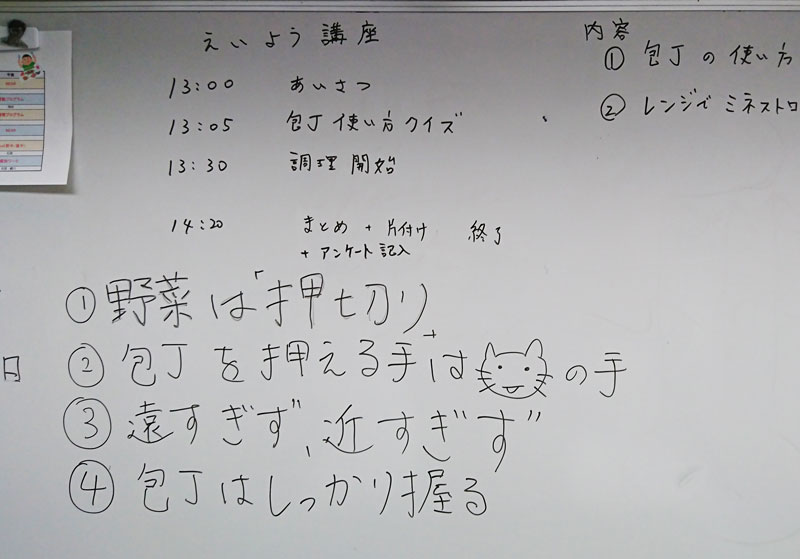 えいよう講座
13:00 あいさつ
13:05 包丁使い方クイズ
13:30 調理開始
14:20 まとめ + 片付け 終了
+ アンケート記入
内容
① 包丁の使い方
② レンジで ミネストロ
①野菜は「押し切り
②包丁を押える手"は の手
③遠すぎず、近すぎず
④包丁はしっかり握る
日